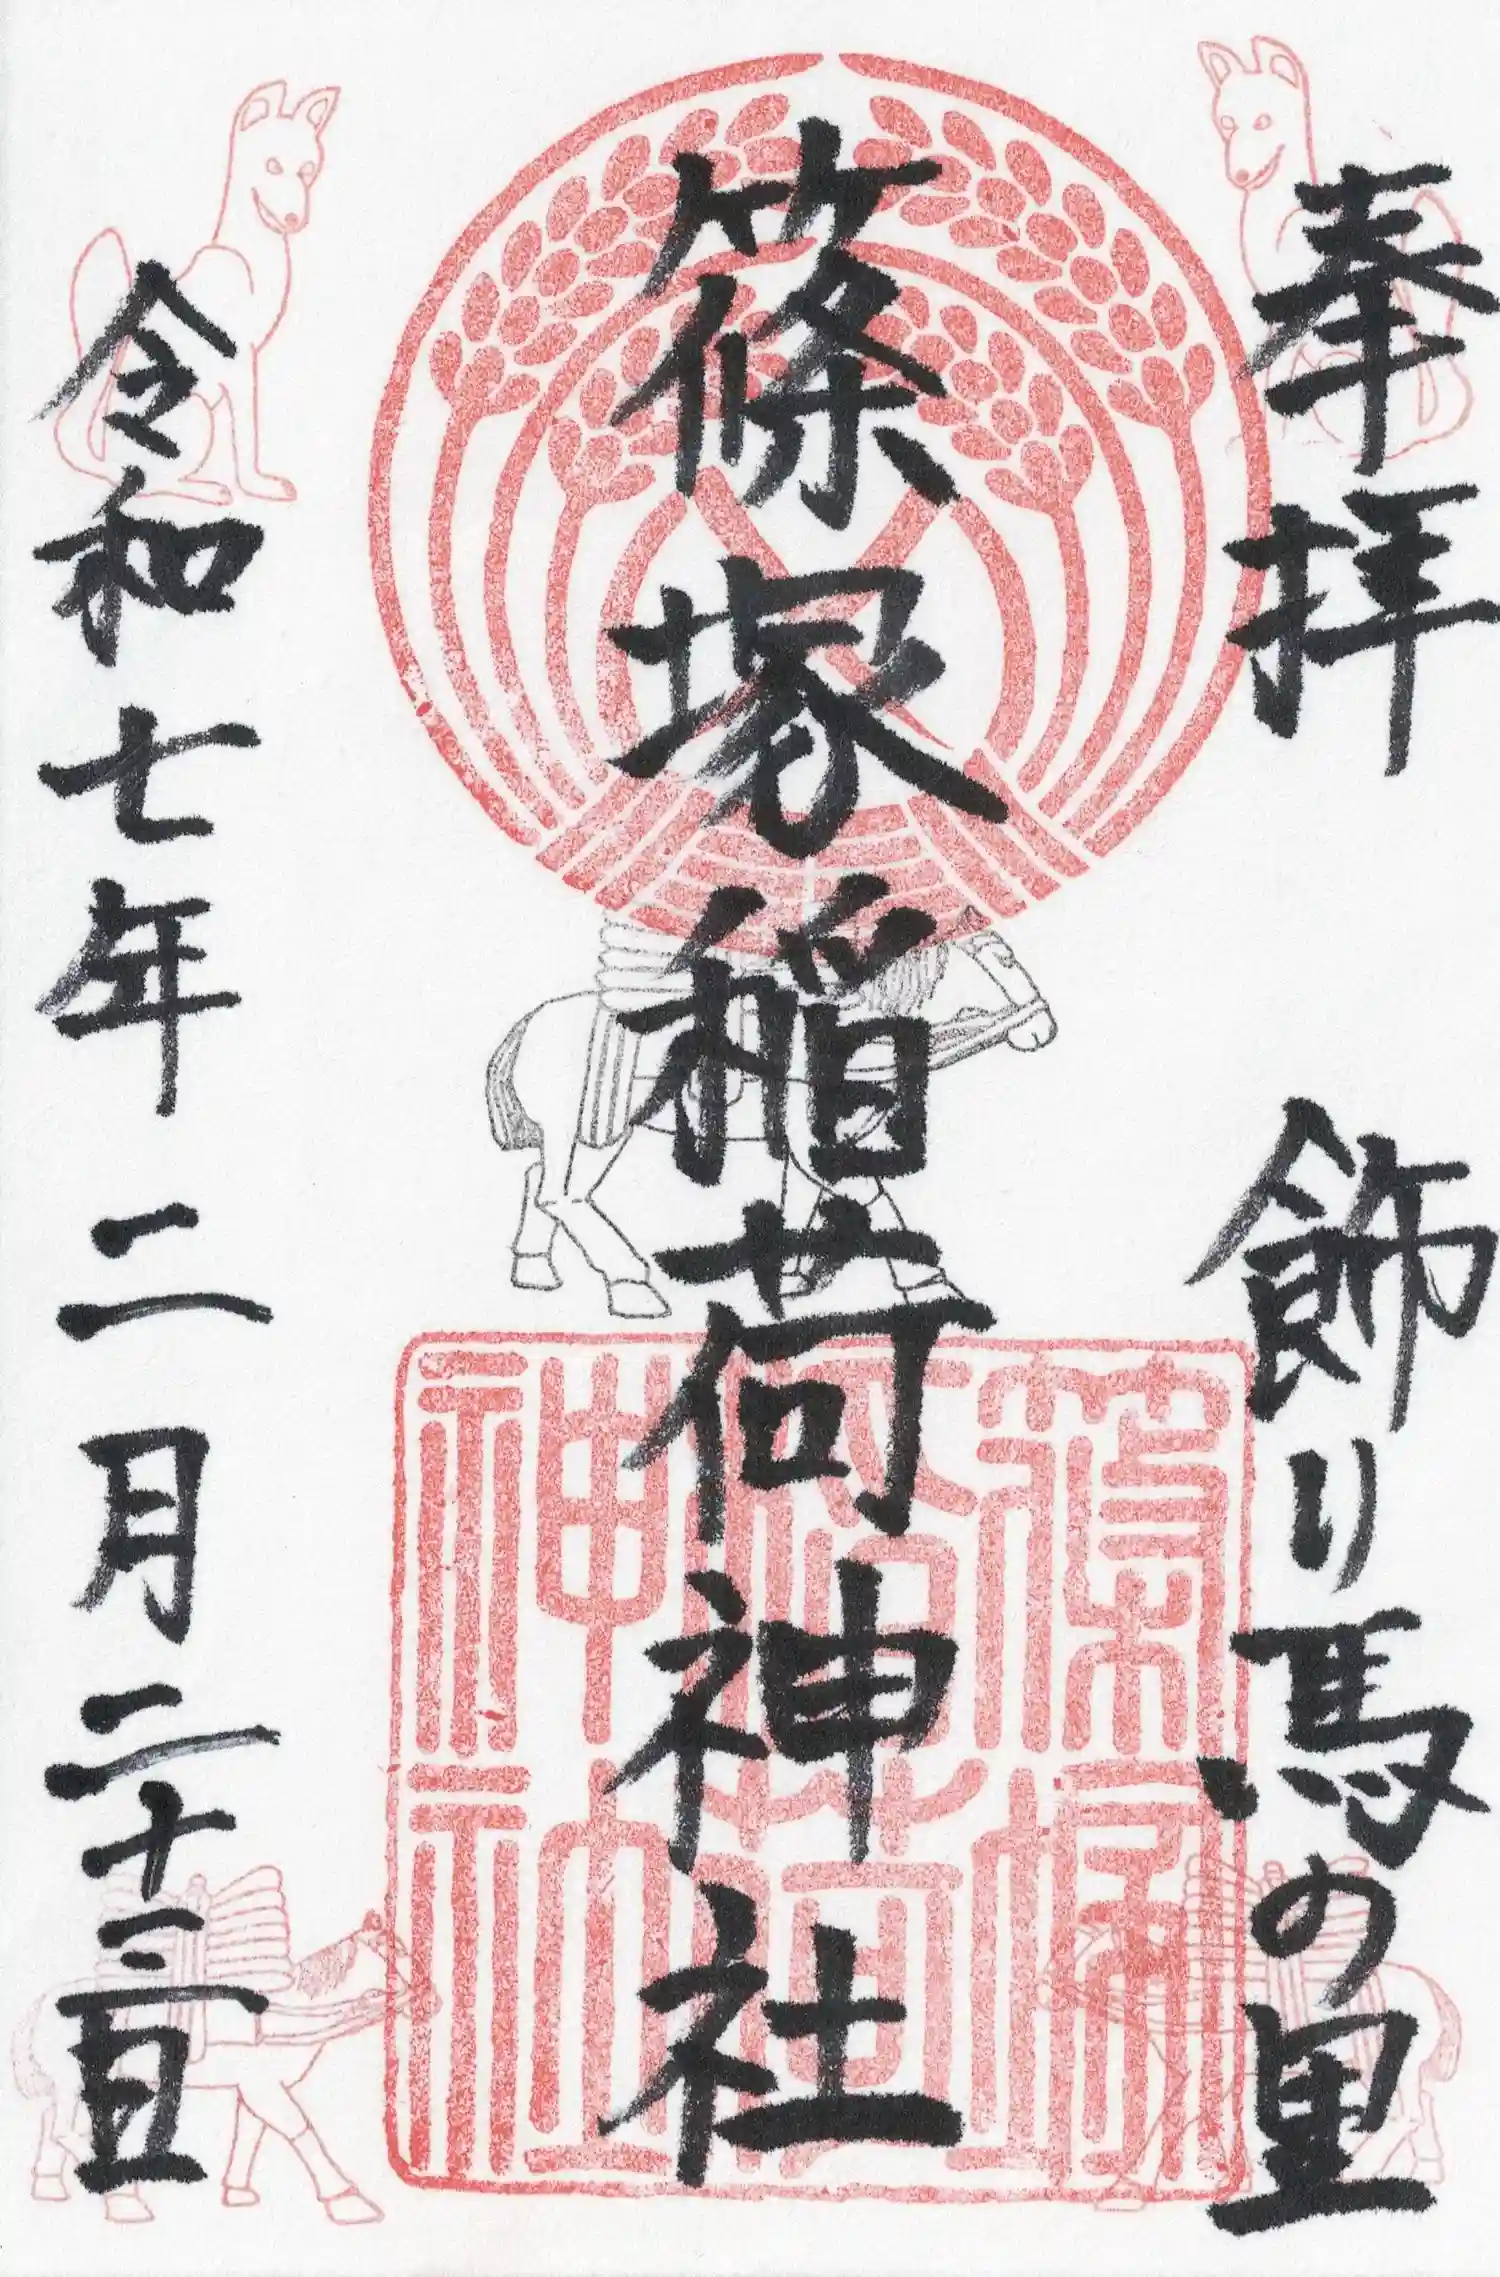 奉拝 飾り馬の里
篠塚稲荷神社
令和七年二月二十三日
篠塚稲荷神社